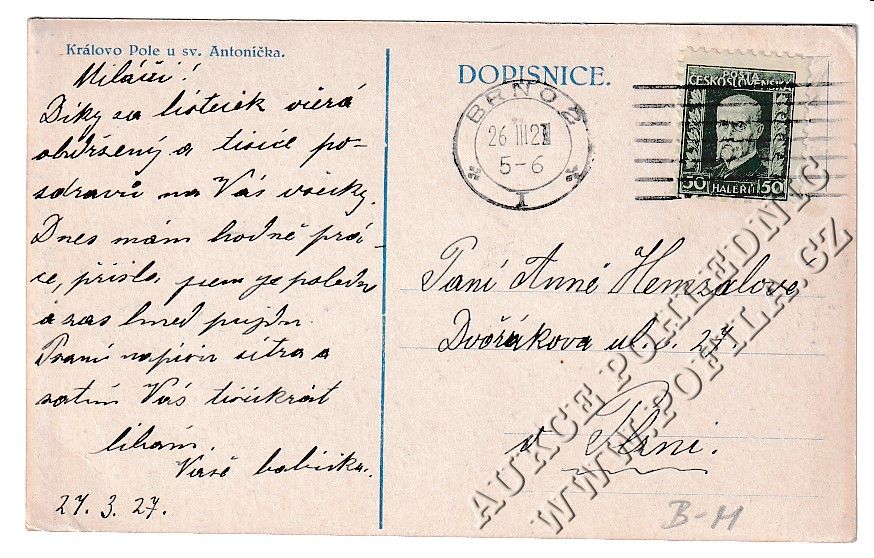 Královo Pole u sv. Antoníčka.
Miláčci!
Díky za lísteček včera
obdržený a tisíce po-
zdravů na Vás všecky.
Dnes mám hodně prá-
ce, přišla jsem ze poledn
a zas hned pujdu.
Psaní napíšu zítra a
zatím Vás tisíckrát
líbám.
Vaše babička.
27. 3. 27.
DOPISNICE.
BRNO 2
26 III 27
5-6
1
POŠTA
ČESKOSLOVENSKÁ
50 HALÉŘŮ 50
Paní Anně Hemzalove
Dvořákova ul. č. 27
v Brně.
B-M
AUKCE POHLEDNIC
WWW.POFILA.CZ